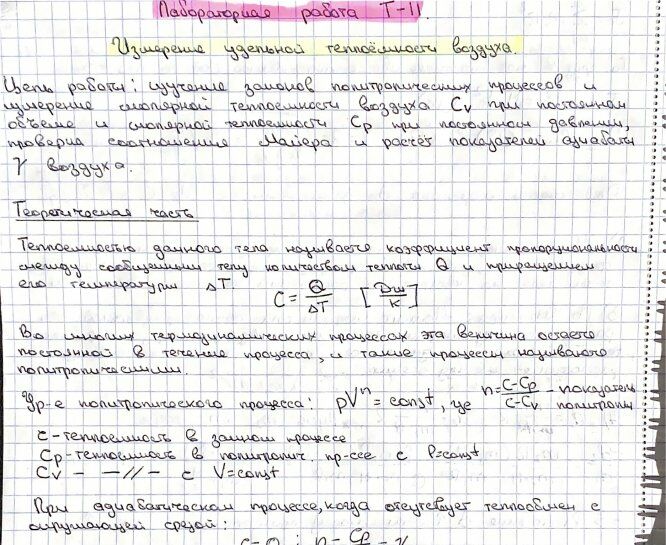 Лабораторная работа Т-11.
Измерение удельной теплоёмкости воздуха.
Цель работы: изучение законов политропических процессов и
измерение молярной теплоемкости воздуха Cv при постоянном
объеме и молярной теплоемкости Cp при постоянном давлении,
проверка соотношения Майера и расчёт показателей адиабаты
γ воздуха.
Теоретическая часть
Теплоемкостью данного тела называется коэффициент пропорциональности
между сообщенным телу количеством теплоты Q и приращением
его температуры ΔT. C = Q/ΔT [Дж/К]
Во многих термодинамических процессах эта величина остается
постоянной в течение процесса, и такие процессы называются
политропическими.
Ур-е политропического процесса: pVⁿ = const, где n = C-Cp/C-Cv - показатель политропы
C - теплоемкость в данном процессе
Cp - теплоемкость в политропич. пр-ссе с P=const
Cv - —//— с V=const
При адиабатическом процессе, когда отсутствует теплообмен с
окружающей средой:
C = 0 ; n = Cp